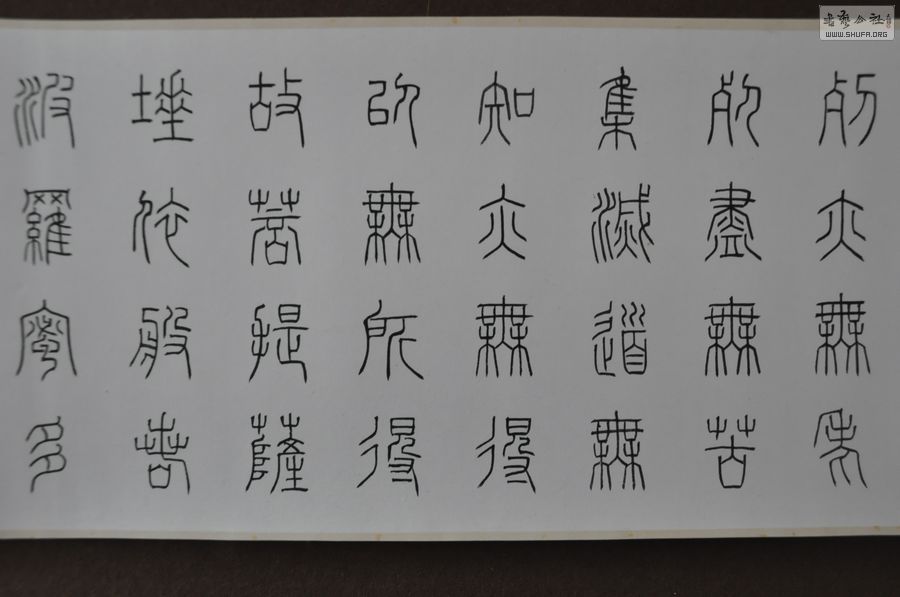 死亦無老
死盡無苦
集滅道無
知亦無得
以無所得
故菩提薩
埵依般若
波羅蜜多
书艺公社
WWW.SHUFA.ORG